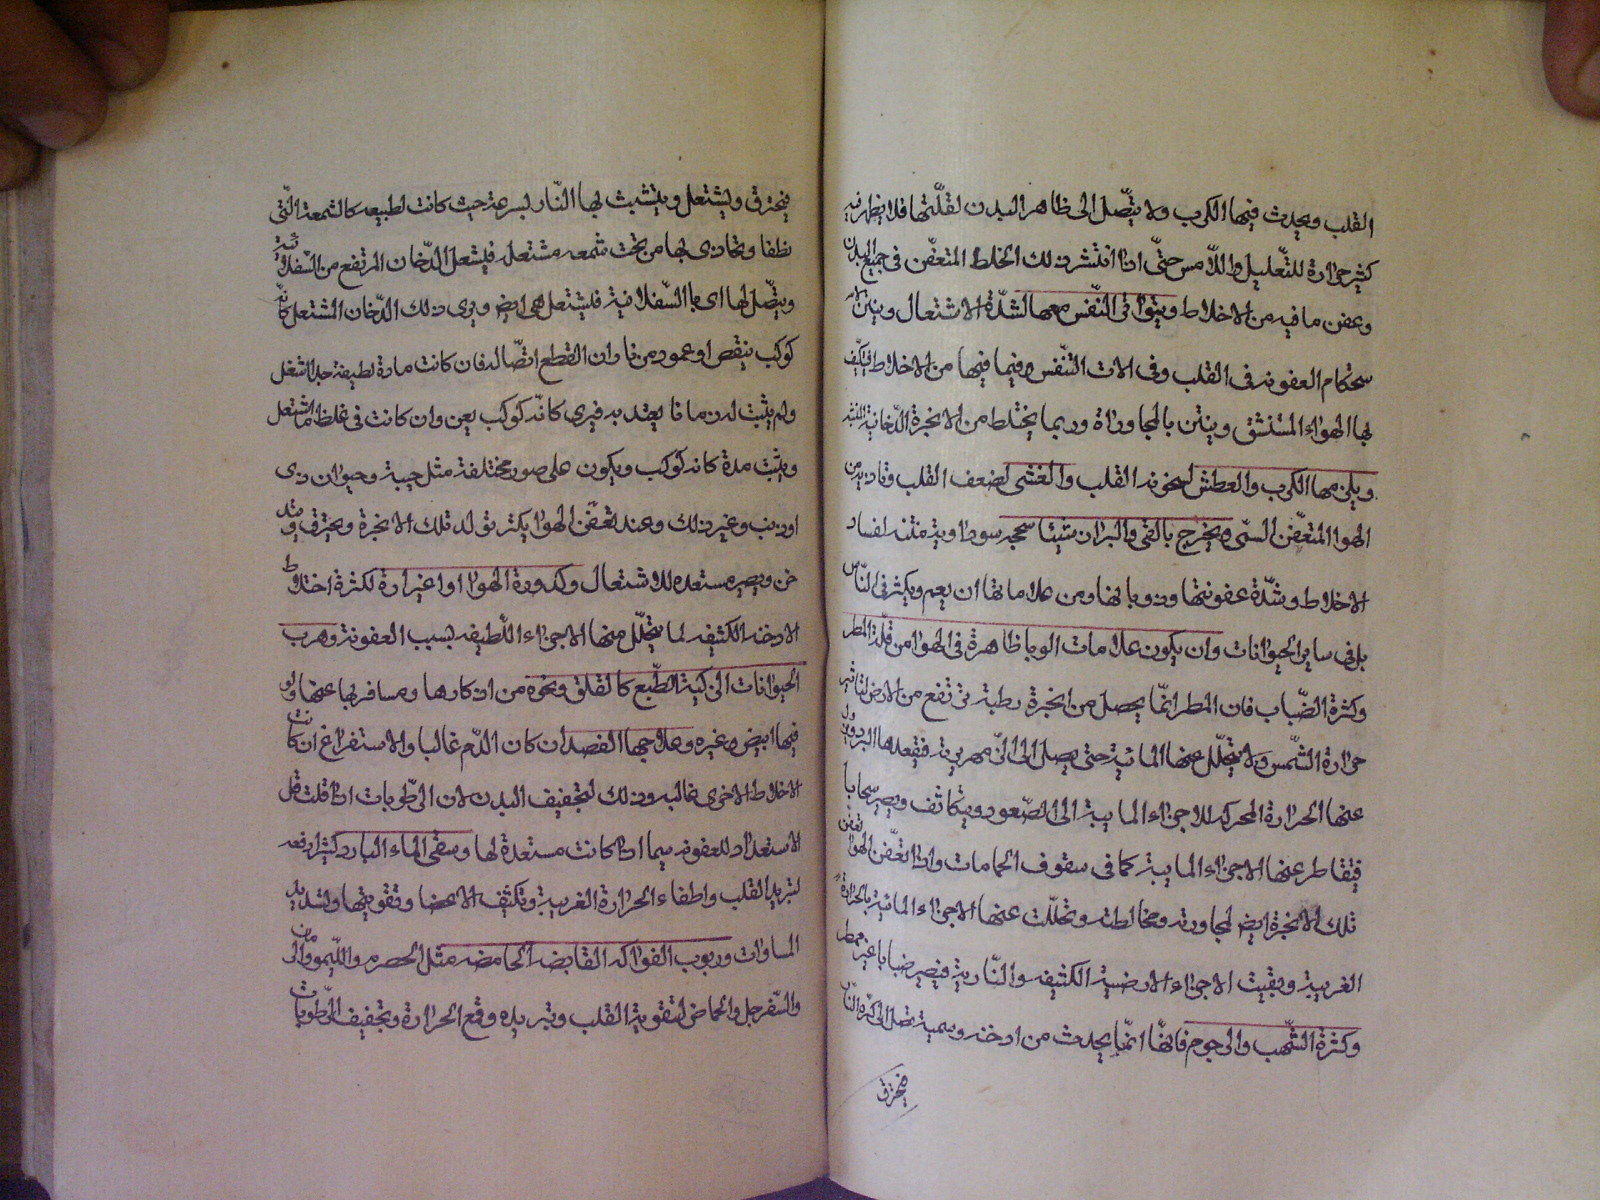 القلب ويحدث فيها الكرب ولا يتّصل الى ظاهر البدن لقلّتها فلا يظهر فيه
كثير حرارة للتّعليل واللّامس حتّى اذا انتشر ذلك الخلط المتعفّن فى جميع البدن
وعفن ما فيه من الاخلاط ويتواتر النّفس معها لشدّة الاشتعال وينتن لا
ستحكام العفونه فى القلب وفى الات التنّفس وفيما فيها من الاخلاط فيتكيّف
بها الهواء المستنشق وينتن بالمجاوراة وربما يختلط من الابخرة الدّخانية
ويلزمها الكرب والعطش لسخونه القلب والغشى لضعف القلب وتاذيه من
الهوا المتعفّن السمّى ويخرج بالقى والبراز شيئا سمجه سوداويه منتنه لفساد
الاخلاط وشدّة عفونتها وذوبانها ومن علاماتها ان يعم ويكثر فى النّاس
بل فى ساير الحيوانات وان يكون علامات الوبا ظاهرة فى الهوا من قلّة المطر
وكثرة الضّباب فان المطر انمّا يحصل من ابخرة رطبة ترتفع من الارض لتاثير
حرارة الشّمس ولا يتحلّل عنها المائية حتى يصل الى الزّمهريريه فيعقدها البرد ويزول
عنها الحرارة المحركه للاجزاء المايية الى الصّعود ويتكاثف ويصير سحابا
فيتقاطر عنها الاجزاء المايية كما فى سقوف الحمامات واذا تعفّن الهوا تعفن
تلك الابخرة ايض لمجاورته ومخالطته وتحلّلت عنها الاجزاء المائية بالحرارة
الغريبة وبقيت الاجزاء الارضية الكثيفه والنّارية فيصير ضبابا غير ممطر
وكثرة الشّهب والرجوم فانّها انمّا يحدث من ادخنه وسمية تصل الى كرة النّار
فيحترق
فيحترق ويشتعل ويتشبث بها النّار بسرعة حيث كانت لطيفه كالشمعة الّتى
تطفا وتحاذى بها من تحت شمعه مشتعله فيشتعل الدّخان المرتفع من السّفلانية
ويتّصل لها اى بالسّفلانية فتشتعل هى ايض ويرى ذلك الدّخان المشتعل كانّه
كوكب ينقض او عمود من نار وان انقطع اتصّاله فان كانت مادة لطيفة جدا اشتعل
ولم يثبت له زمانا يعتد به فيرى كانّه كوكب يعن وان كانت فى غلظ ما اشتعل
ويثبت مدة كانه كوكب ويكون على صور مختلفة مثل حية وحيوان ذى
او ذنب وغير ذلك وعند تعفّن الهوا يكثر تولد تلك الابخرة ويحترق ويتد
خن ويصير مستعده للاشتعال وكدورة الهوا او اغبراره لكثرة اختلاط
الادخنه الكثيفه لما يتحلّل منها الاجزاء اللّطيفه بسبب العفونة وهرب
الحيوانات الزكية الطّبع كالقلق ونحوه من اوكارها ومسافرتها عنها ولو
فيها ابيض وغيره وعلاجها الفصد ان كان الدّم غالبا والاستفراغ ان كانت
الاخلاط الاخرى غالبه وذلك لتجفيف البدن لان الرطوبات اذا قلت قل
الاستعداد للعفونه سيما اذا كانت مستعدة لها وسقى الماء البارد كثيرا دفعه
لتبريد القلب واطفاء الحرارة الغريبة وتكثيف الاعضا وتقويتها وتشديد
المسامات وربوب الفواكه القابضه الحامضه مثل الحصرم واللّيمو والرمان
والسّفرجل والحماض لتقوية القلب وتبريده وقمع الحرارة وتجفيف الرّطوبات